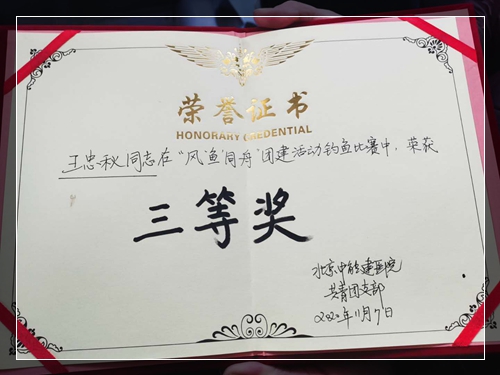 荣誉证书
HONORARY CREDENTIAL
王忠秋同志在“风‘渔’同舟”团建活动钓鱼比赛中，荣获
三等奖
北京中能建医院
共青团支部
2020年11月7日